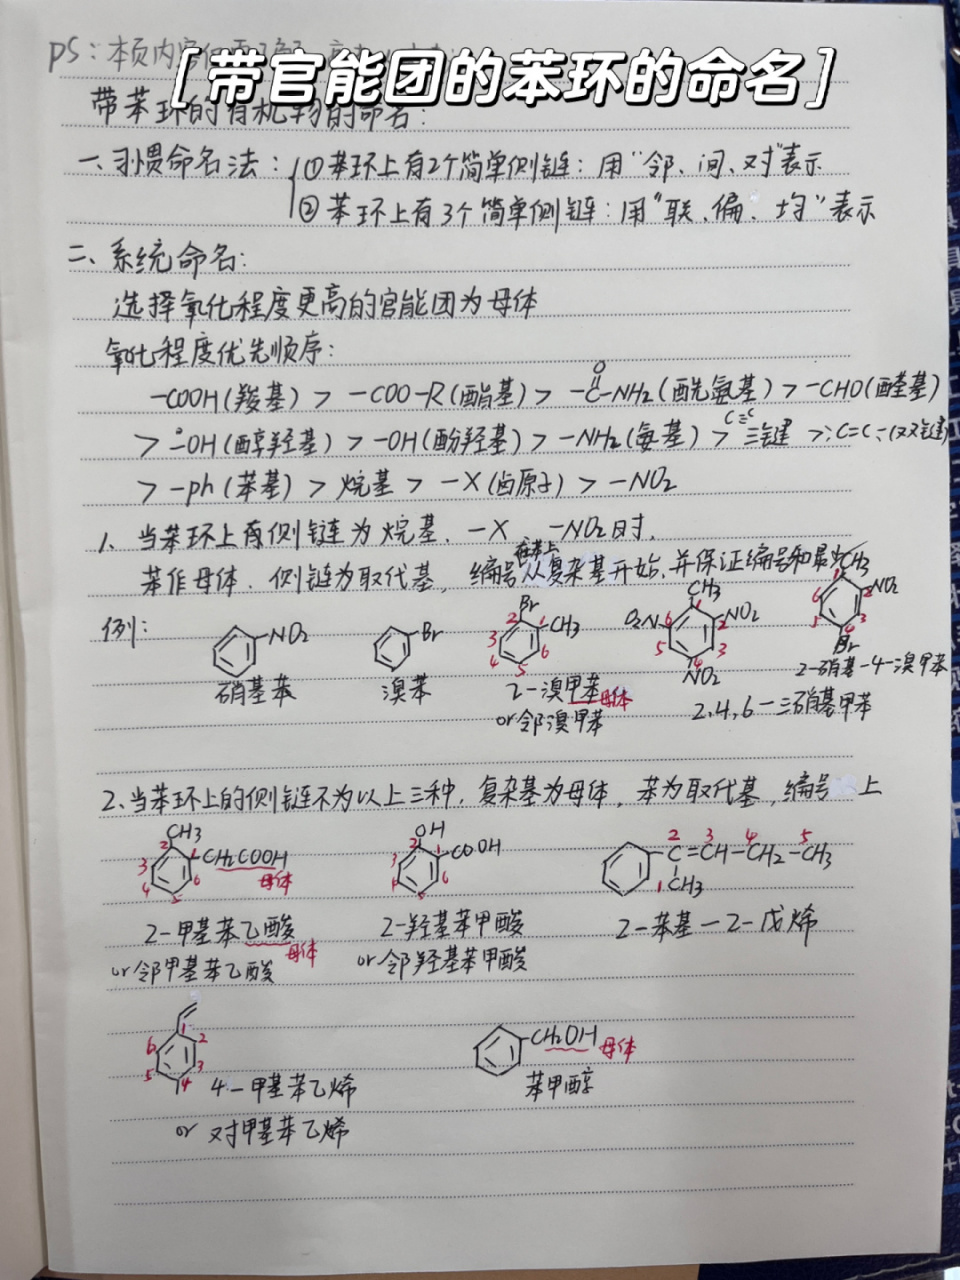 [带官能团的苯环的命名]
ps：本页内容仅需了解
带苯环的有机物的命名：
一、习惯命名法：①苯环上有2个简单侧链：用“邻、间、对”表示
②苯环上有3个简单侧链：用“联、偏、均”表示
二、系统命名：
选择氧化程度更高的官能团为母体
氧化程度优先顺序：
-COOH(羧基) > -COO-R(酯基) > -C-NH2(酰氨基) > -CHO(醛基)
O
> -OH(醇羟基) > -OH(酚羟基) > -NH2(氨基) > 三键 > C=C(双键)
C≡C
> -ph(苯基) > 烷基 > -X(卤原子) > -NO2
1、当苯环上有侧链为烷基、-X、-NO2时，
苯作母体、侧链为取代基，编号从复杂基开始，并保证编号和最小
在苯上
例：
NO2
硝基苯
Br
溴苯
Br
CH3
1
2
3
4
5
6
2-溴甲苯 母体
or邻溴甲苯
CH3
O2N
NO2
NO2
1
2
3
4
5
6
2,4,6-三硝基甲苯
CH3
NO2
Br
2-硝基-4-溴甲苯
2、当苯环上的侧链不为以上三种，复杂基为母体，苯为取代基，编号 上
CH3
CH2COOH
母体
1
2
3
4
5
6
2-甲基苯乙酸
母体
or邻甲基苯乙酸
OH
COOH
1
2
3
5
6
2-羟基苯甲酸
or邻羟基苯甲酸
2 3 4 5
C=CH-CH2-CH3
1CH3
2-苯基-2-戊烯
1
2
3
4
5
6
4-甲基苯乙烯
or 对甲基苯乙烯
CH2OH 母体
苯甲醇